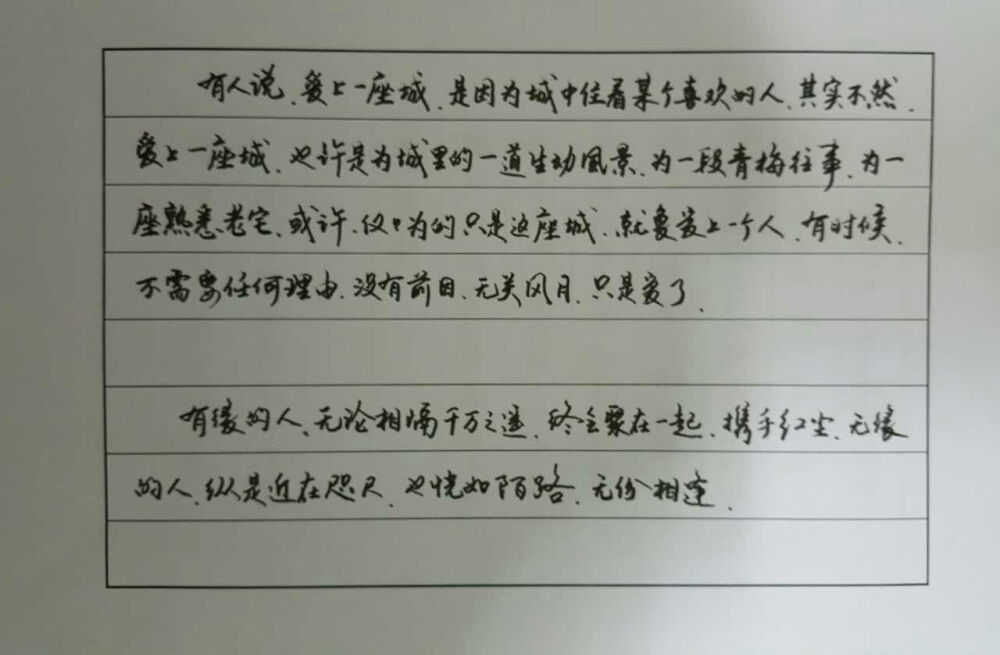 有人说、爱上一座城、是因为城中住着某个喜欢的人、其实不然.
爱上一座城、也许是为城里的一道生动风景、为一段青梅往事、为一
座熟悉老宅、或许、仅々为的只是这座城、就象爱上一个人、有时候、
不需要任何理由、没有前因、无关风月、只是爱了.
有缘的人、无论相隔千万之遥、终会聚在一起、携手红尘、无缘
的人、纵是近在咫尺、也恍如陌路、无份相逢.